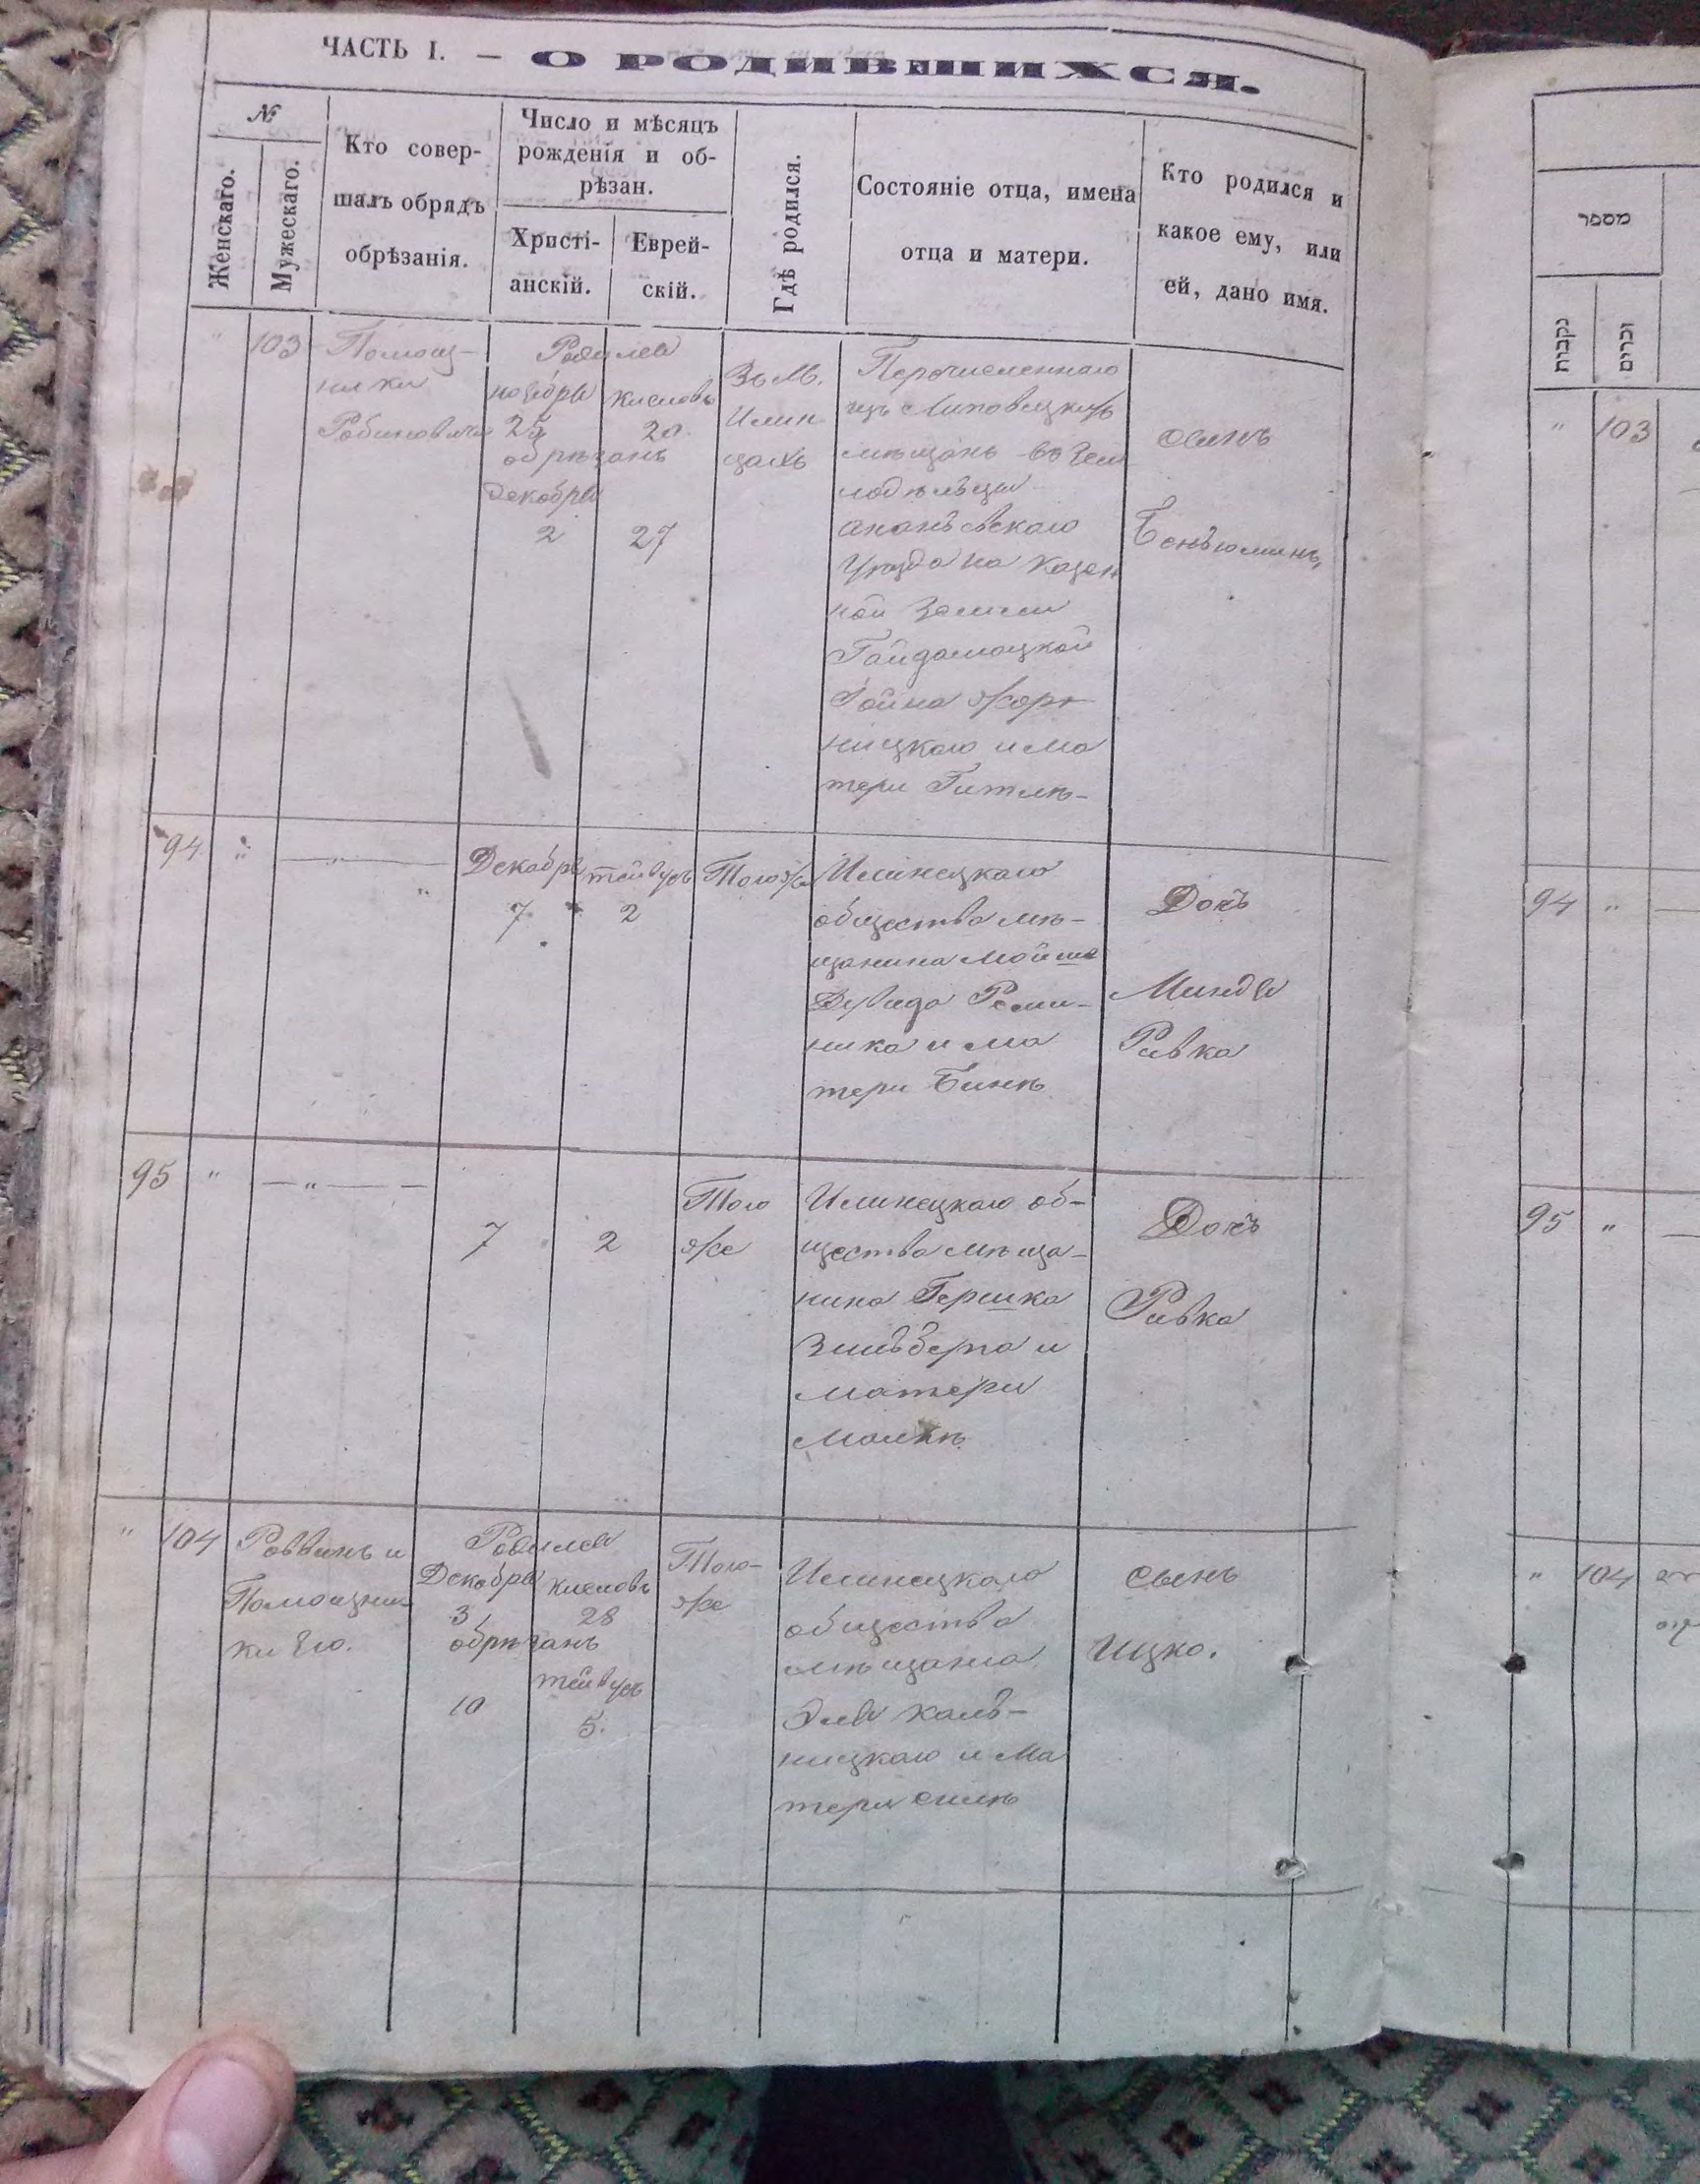 ЧАСТЬ I. — О РОДИВШИХСЯ.
№
Женскаго.
Мужескаго.
Кто совер-
шалъ обрядъ
обрѣзанія.
Число и мѣсяцъ
рожденія и об-
рѣзан.
Христі-
анскій.
Еврей-
скій.
Гдѣ родился.
Состояніе отца, имена
отца и матери.
Кто родился и
какое ему, или
ей, дано имя.
" 103
Помощ-
ники
Рабиновича
Родился
ноября Кислевъ
25 20
обрѣзанъ
Декабря
2 27
Въ М.
Илин
цахъ
Перечисленнаго
изъ Липовецкихъ
мѣщанъ въ Зем
лодѣльцы
Ананьевскаго
Уѣзда на Казен
ной Земли
Гайдамацкой
ницкаго и Ма
тери Гитлѣ-
сынъ
Беньюминъ,
94 " — " —
Декабря тейвусъ
7 2
Тогоже
Илинецкаго
общества мѣ-
щанина Мойше
Дувида
ника и ма
тери Бинѣ
Дочь
Миндя
Ривка
95 " — " — —
7 2
Того
же
Илинецкаго об-
щества мѣща-
нина Гершка
Зильберга и
матери
Малкѣ
Дочь
Ривка
" 104
Раввинъ и
Помощни-
ки Его.
Родился
Декабря Кислевъ
3 28
обрѣзанъ
тейвусъ
10 5.
Того-
же
Илинецкаго
общества
мѣщанина
Эля Каль-
ницкаго и Ма
тери
сынъ
Ицко.
מספר
נקבות
זכרים
" 103
94 " —
95 " —
" 104